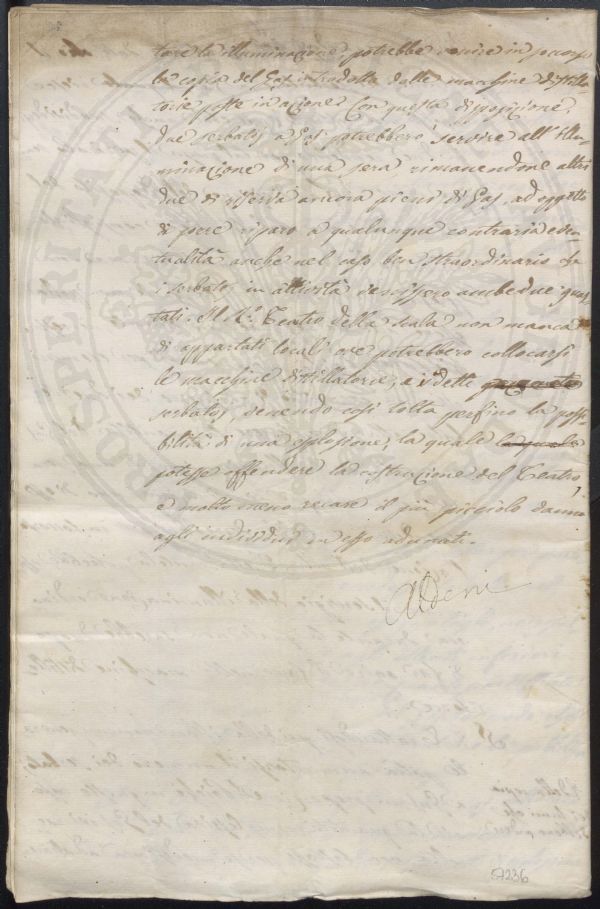 tare la illuminazione, potrebbe venire in
be copia del Gas introdotta dalle macchine distilla
torie poste in azione. Con questa disposizione,
due serbatoj a Gas potrebbero servire all'Illu-
minazione di una sera, rimanendone altri
due di riserva ancora pieni di Gas, ad oggetto
di porre riparo a qualunque contraria even-
tualità anche nel caso ben straordinario che
i serbatoj in attività venissero ambedue gua-
stati. Il R.º Teatro della Scala non manca
di appartati locali ove potrebbero collocarsi
le macchine distillatorie, e i detti
serbatoj, venendo così tolta perfino la possi-
bilità di una esplosione, la quale la quale
potesse offendere la costruzione del Teatro,
e molto meno recare il più picciolo danno
agli individui in esso adunati.
Aldini
PROSPERITATI
7236